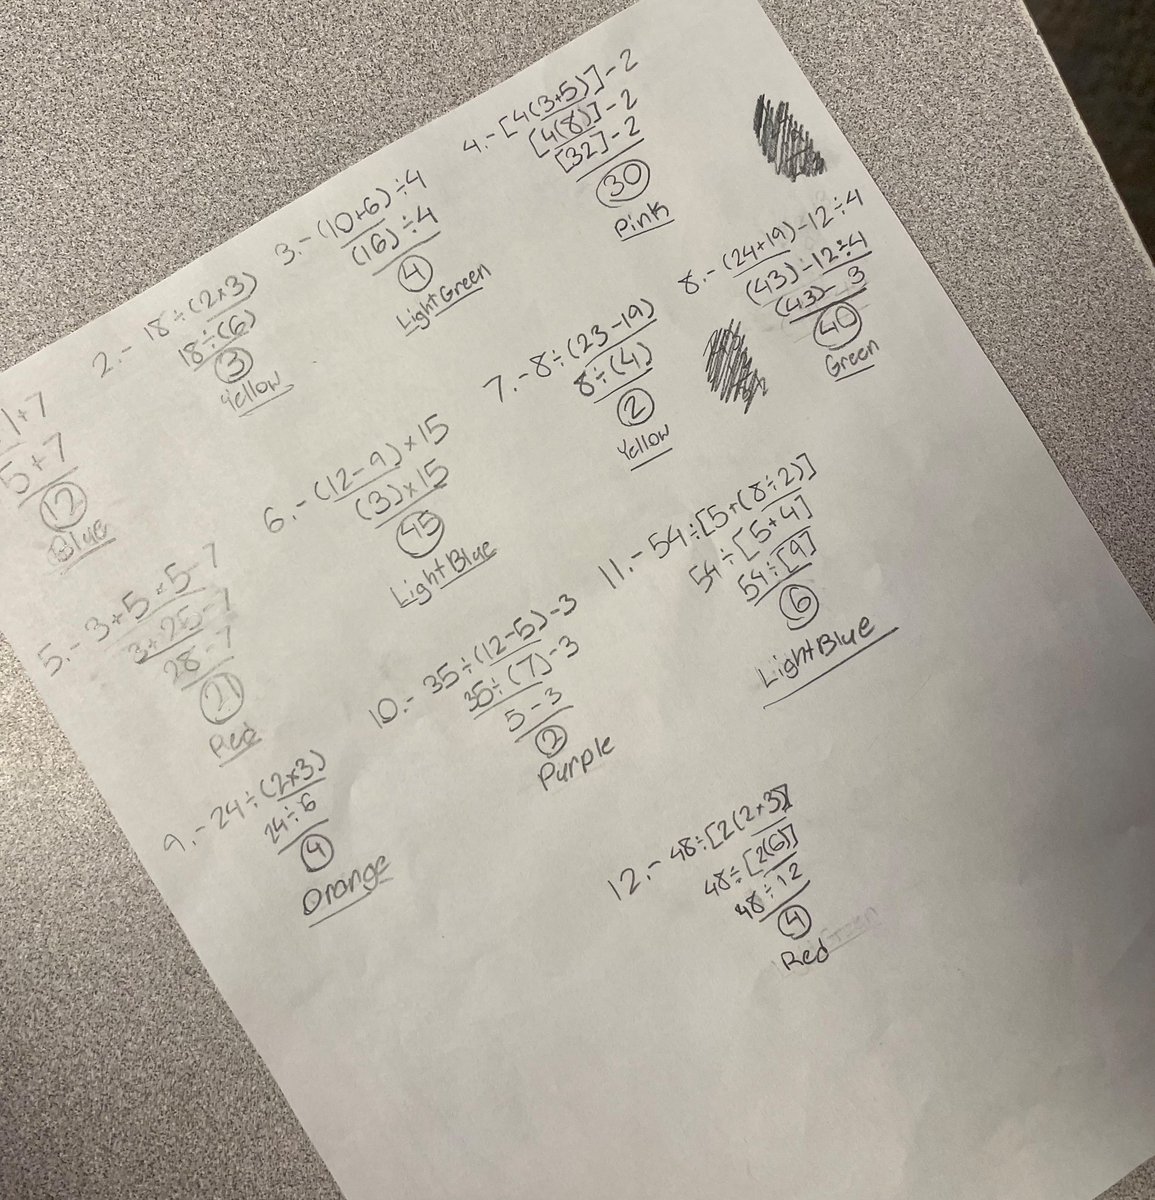 1+7
5+7
12
Blue
2.- 18÷(2×3)
18÷(6)
3
Yellow
3.- (10+6)÷4
(16)÷4
4
Light Green
4.- [4(3+5)]-2
[4(8)]-2
[32]-2
30
Pink
5.- 3+5×5-7
3+25-7
28-7
21
Red
6.- (12-9)×15
(3)×15
45
Light Blue
7.- 8÷(23-19)
8÷(4)
2
Yellow
8.- (24+19)-12÷4
(43)-12÷4
(43)-3
40
Green
9.- 24÷(2×3)
24÷6
4
Orange
10.- 35÷(12-5)-3
35÷(7)-3
5-3
2
Purple
11.- 54÷[5+(8÷2)]
54÷[5+4]
54÷[9]
6
Light Blue
12.- 48÷[2(2×3)]
48÷[2(6)]
48÷12
4
Red